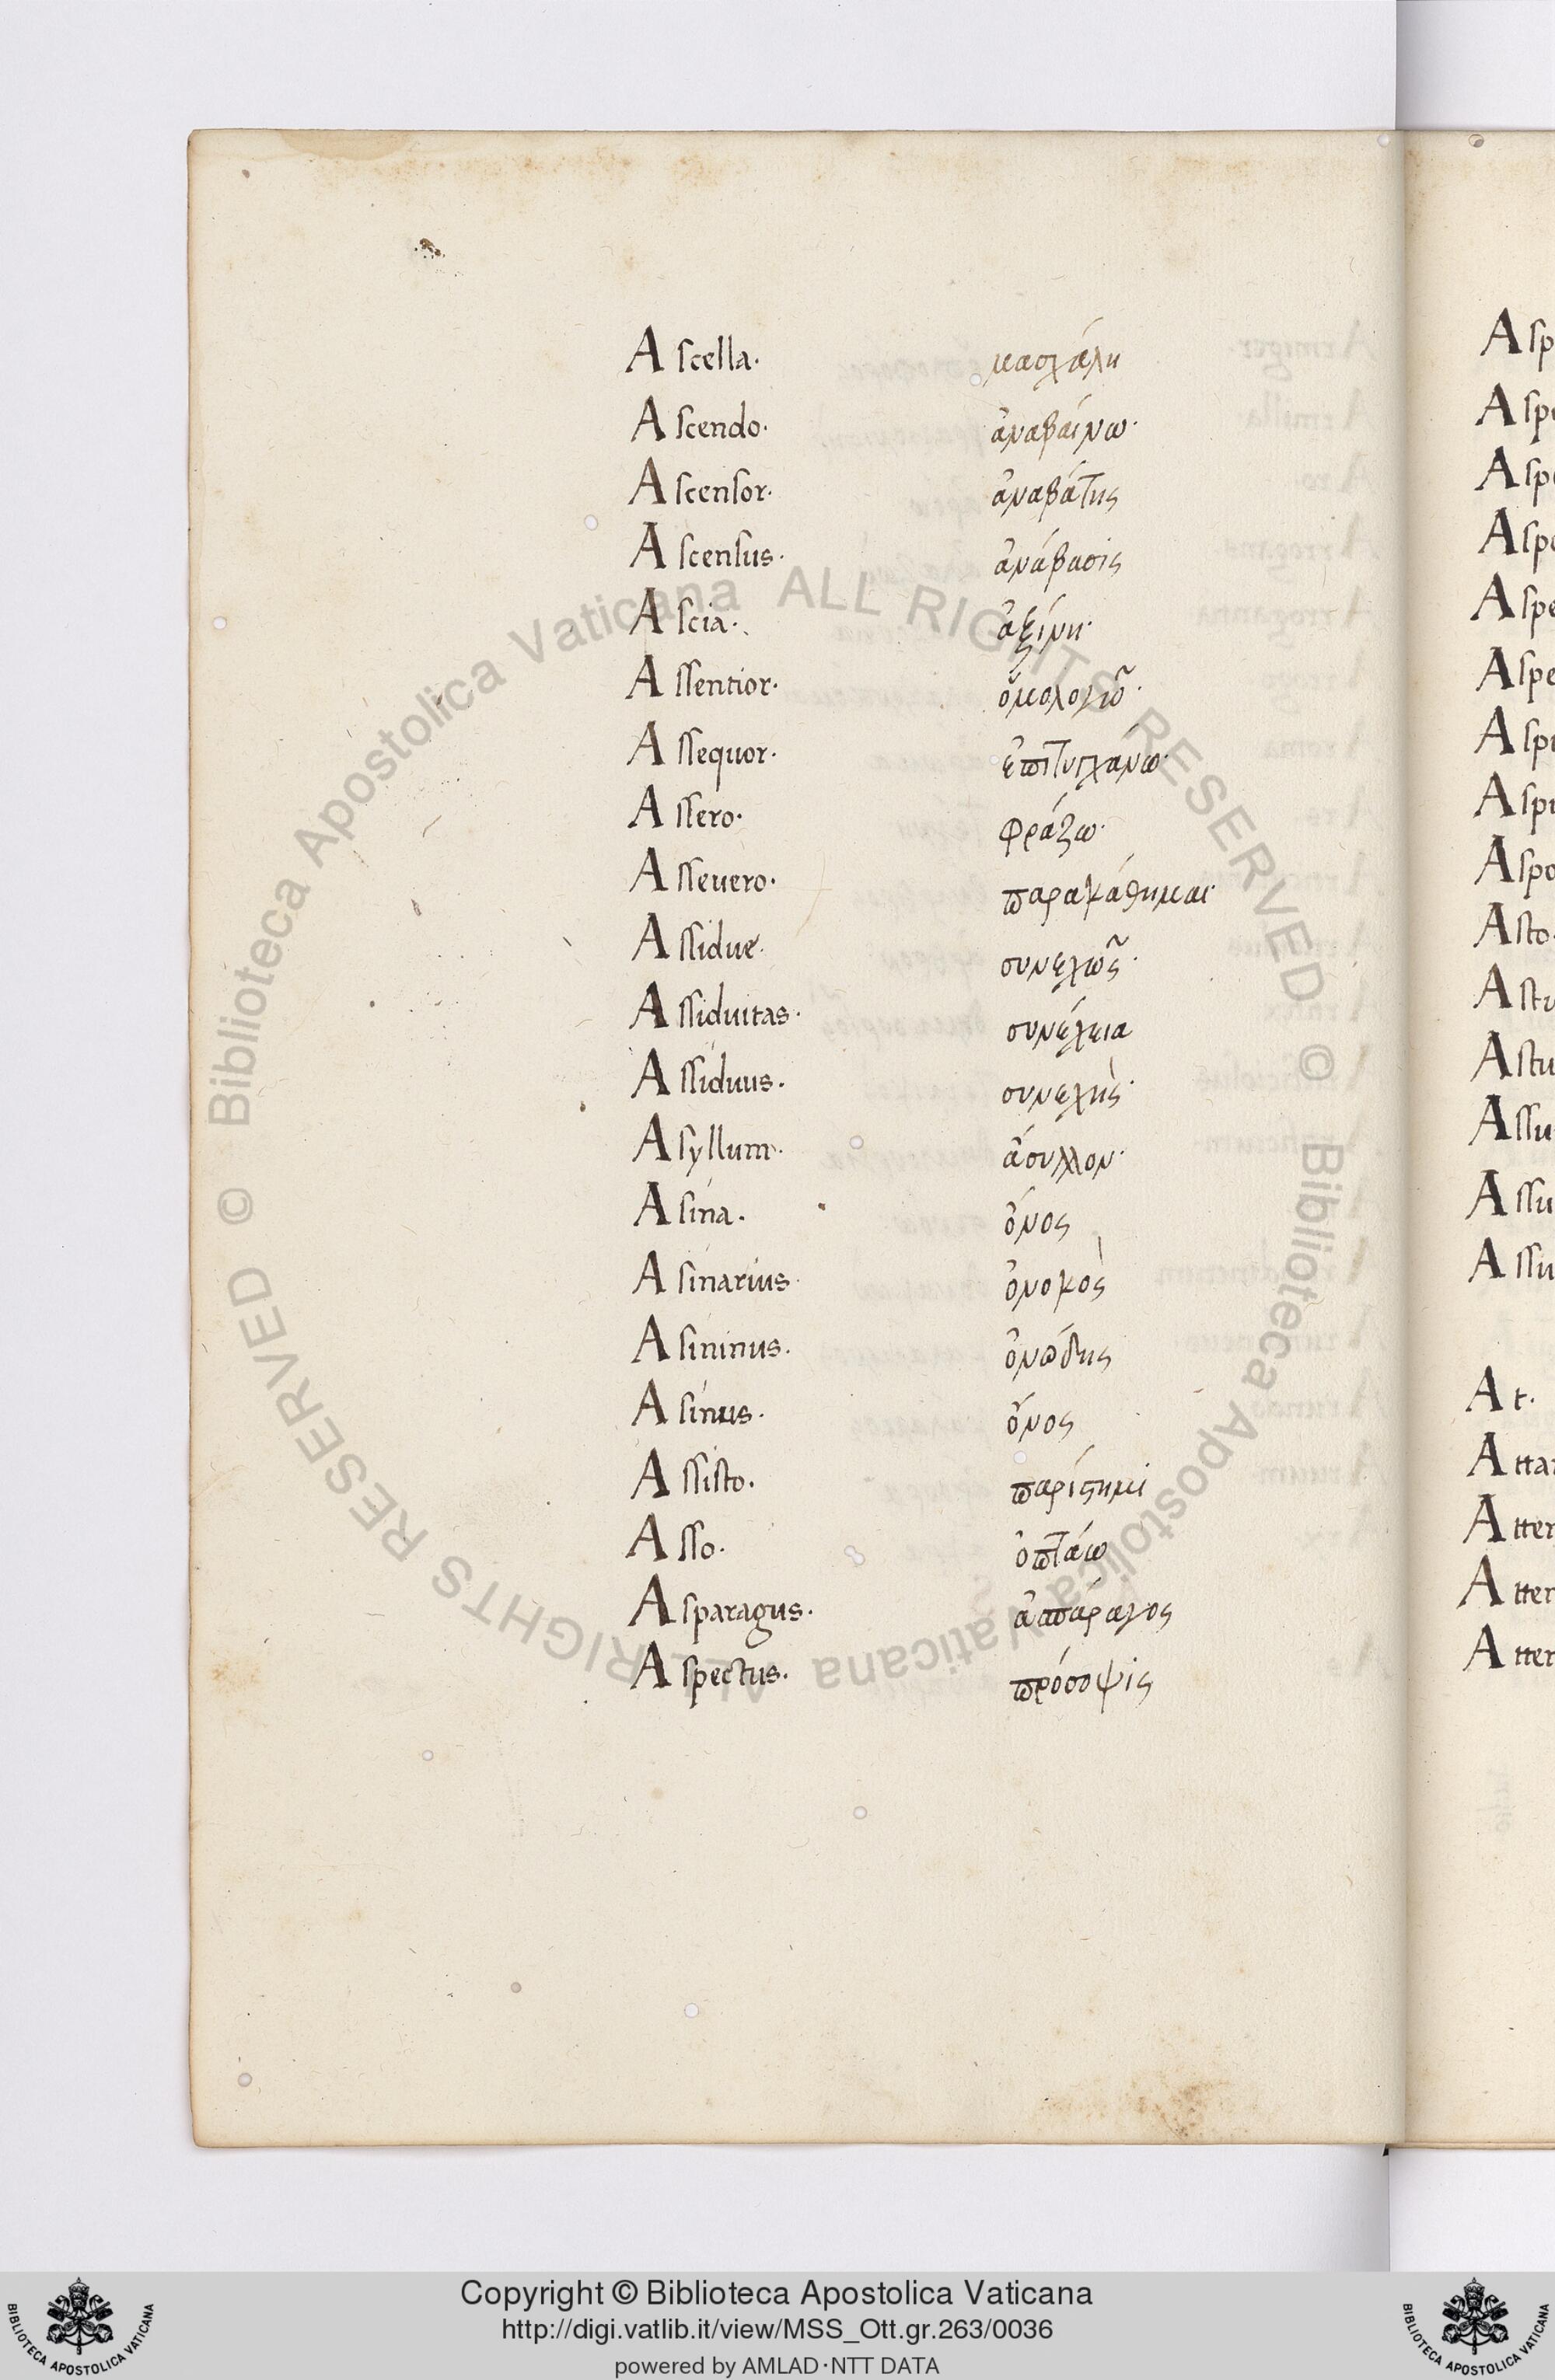 Ascella. μασχάλη
Ascendo. ἀναβαίνω.
Ascensor. ἀναβάτης
Ascensus. ἀνάβασις
Ascia. ἀξίνη.
Assentior. ὁμολογῶ.
Assequor. ἐπιτυγχάνω.
Assero. φράζω.
Asseuero. παρακάθημαι.
Assidue. συνεχῶς.
Assiduitas. συνέχεια
Assiduus. συνεχὴς.
Asyllum. ἄσυλλον.
Asina. ὄνος
Asinarius. ὀνοκὸς
Asininus. ὀνώδης
Asinus. ὄνος
Assisto. παρίστημι
Asso. ὀπτάω
Asparagus. ἀσπάραγος
Aspectus. πρόσοψις
Asp
Aspe
Asp
Aspe
Aspe
Aspe
Asp
Asp
Aspo
Asto.
Astu
Astu
Assu
Assu
Assu
At.
Atta
Atter
Atter
Atter
© Biblioteca Apostolica Vaticana ALL RIGHTS RESERVED © Biblioteca Apostolica Vaticana ALL RIGHTS RESERVED
Copyright © Biblioteca Apostolica Vaticana
http://digi.vatlib.it/view/MSS_Ott.gr.263/0036
powered by AMLAD·NTT DATA
BIBLIOTECA APOSTOLICA VATICANA
BIBLIOTECA APOSTOLICA VATICANA